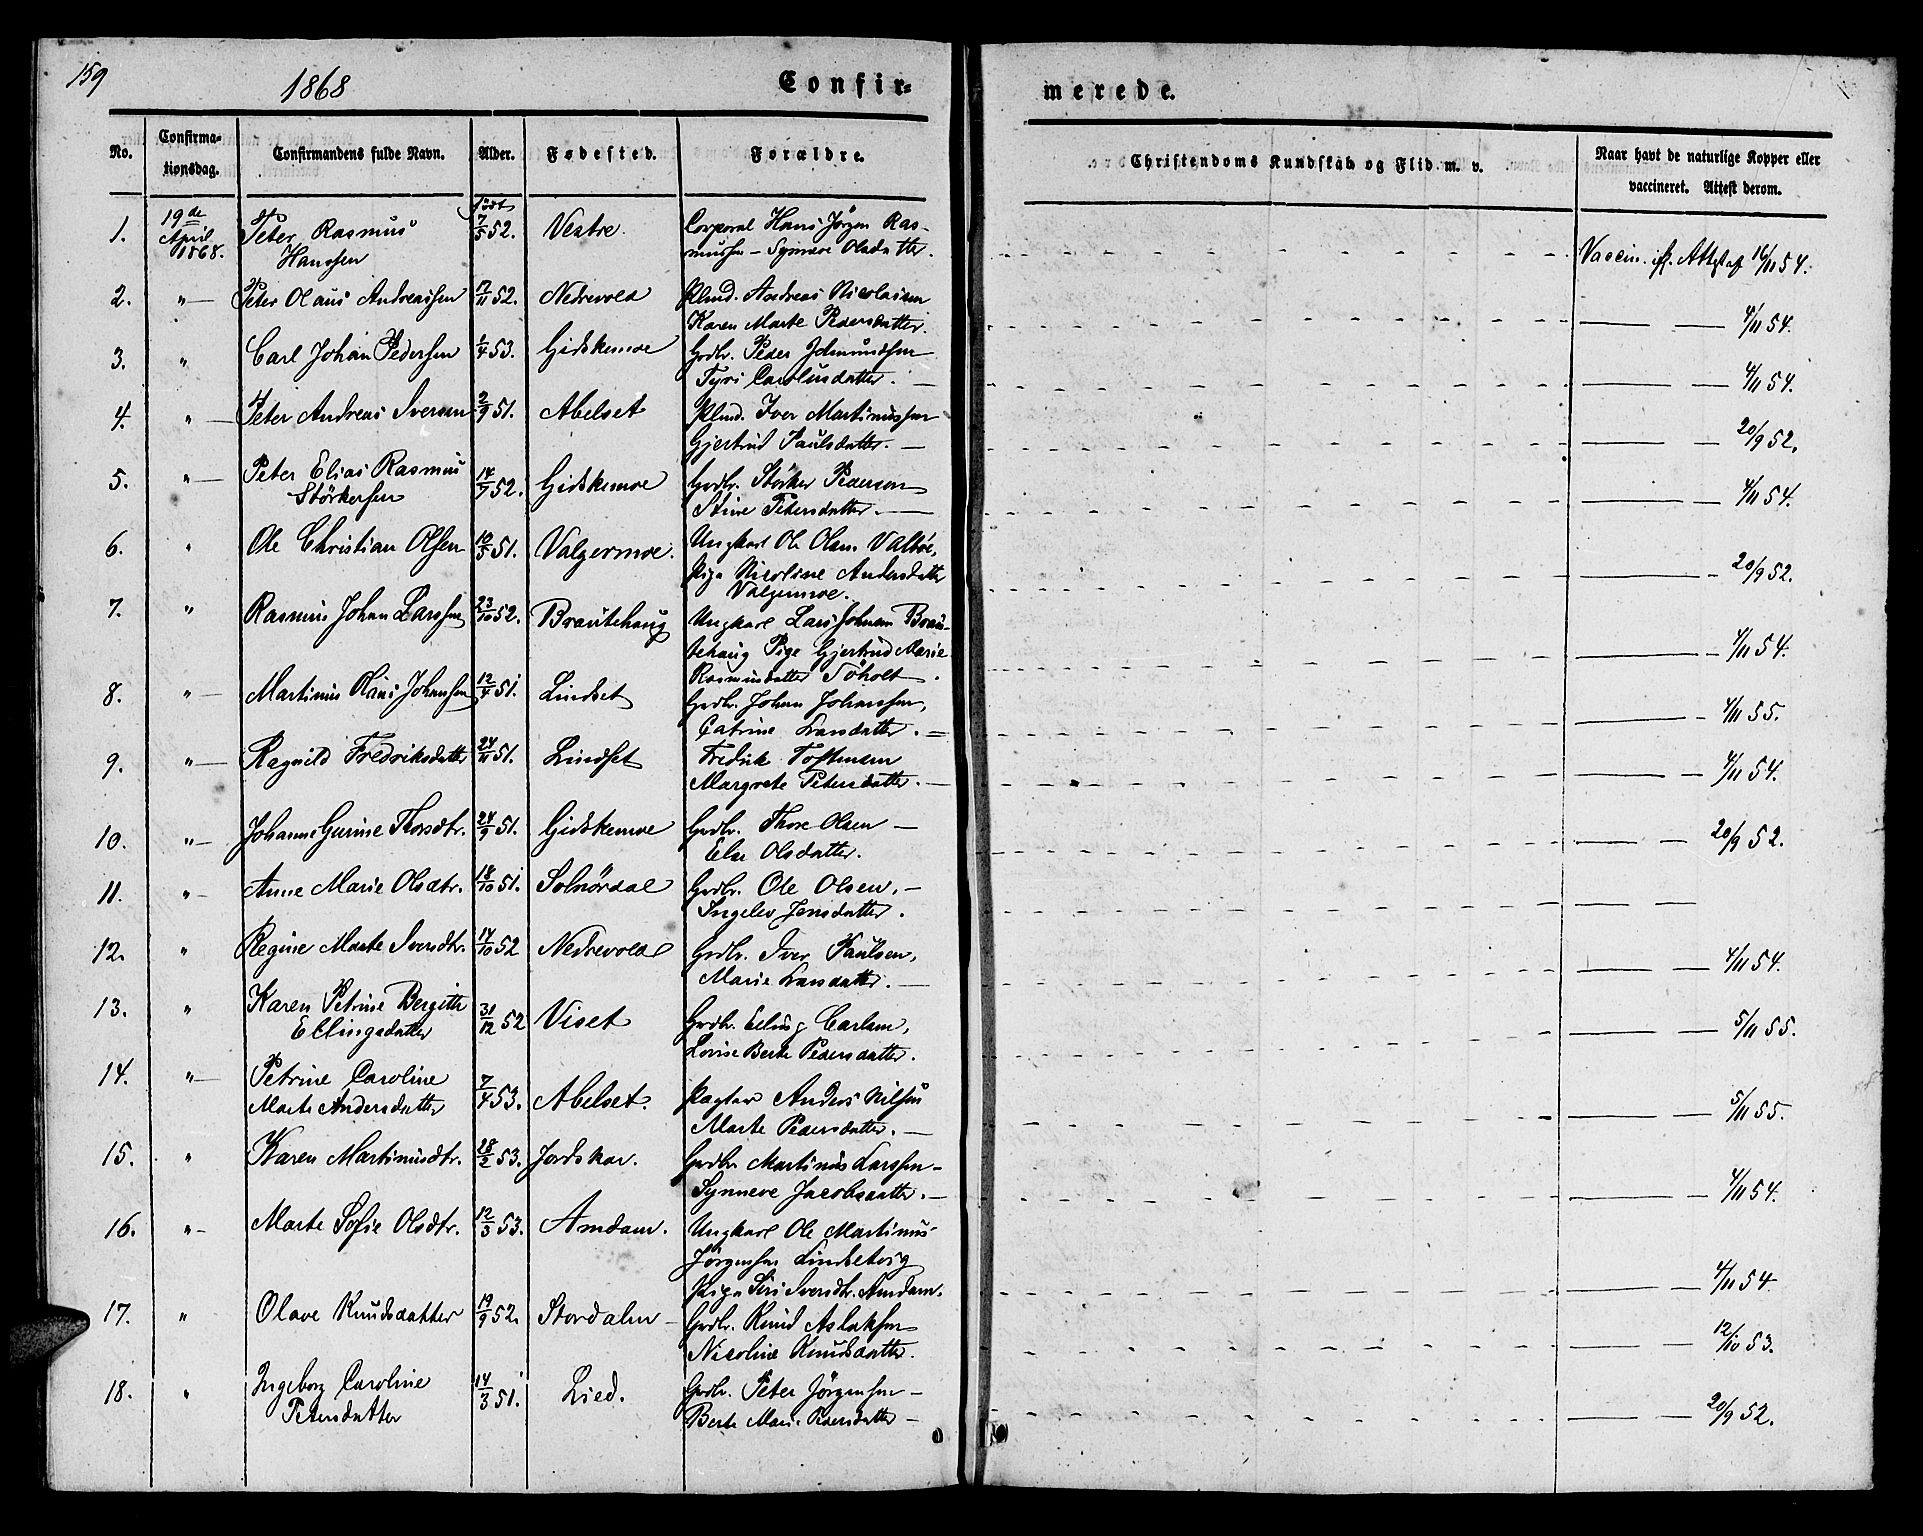 159
1868
Confir-
merede.
No. Confirma- tionsdag. Confirmandens fulde Navn. Alder. Fødested. Forældre. Christendoms Kundskab og Flid m. v. Naar havt de naturlige Kopper eller vaccineret. Attest derom.
1. 19de April 1868. Peter Rasmus Hanssen født 7/5 52. Vestre. Corporal Hans Jörgen Ras-
mussen - Synneve Olsdatter. Vaccin. Attest af 16/11 54.
2. " Peter Olaus Andreassen 17/11 52. Nedrevold Plmd. Andreas Nicolaisen
Karen Marte Pedersdatter. 4/11 54.
3. " Carl Johan Pedersen 1/4 53. Gidskemoe Grdbr. Peder
Tyri Carolusdatter. 4/11 54.
4. " Peter Andreas Iversen 2/9 51. Abelset Plmd. Iver Martinussen
Gjertrud Paulsdatter. 20/9 52.
5. " Peter Elias Rasmus Störkersen 14/7 52. Gidskemoe Grdbr. Störker Pedersen
Stine Petersdatter. 4/11 54.
6. " Ole Christian Olsen 10/5 51. Valgermoe. Ungkarl Ole Olsen Valböe,
Pige Nicoline Andersdatter
Valgermoe. 20/9 52.
7. " Rasmus Johan Larssen 23/10 52. Brautehaug Ungkarl Lars Johnsen Brau-
tehaug Pige Gjertrud Marie
Rasmusdatter Söholt. 4/11 54.
8. " Martinus Olaus Johansen 12/4 51. Lindset Grdbr. Johan Johanssen,
Catrine Larsdatter. 4/11 55.
9. " Ragnild Fredriksdatter 24/11 51. Lindset Fredrik Tostensen
Margrete Petersdatter. 4/11 54.
10. " Johanne Gurine Thorsdtr. 24/9 51. Gidskemoe Grdbr. Thore Olsen
Else Olsdatter. 20/9 52.
11. " Anne Marie Olsdtr. 18/10 51. Solnördal Grdbr. Ole Olsen,
Ingelev Jensdatter.
12. " Regine Marte Iversdtr. 14/10 52 Nedrevold Grdbr. Iver Paulsen,
Marie Larsdatter. 4/11 54.
13. " Karen Petrine Bergitte Ellingsdatter 31/12 52 Viset Grdbr. Elling Carlsen,
Lovise Berte Pedersdatter. 5/11 55.
14. " Petrine Caroline Marte Andersdatter 7/4 53. Abelset. Pagter Anders Nilsen
Marte Pedersdatter. 5/11 55.
15. " Karen Martinusdtr. 28/2 53. Jordskar. Grdbr. Martinus Larssen
Synneve Jacobsdatter. 4/11 54.
16. " Marte Sofie Olsdtr. 12/3 53. Amdam. Ungkarl Ole Martinus
Jörgensen Lindseterg
Pige Siri Iversdtr. Amdam. 4/11 54
17. " Olave Knudsdatter 19/9 52. Stordalen Grdbr. Knud Aslaksen
Nicoline Knudsdatter. 12/10 53.
18. " Ingeborg Caroline Petersdatter 14/3 51. Lied. Grdbr. Peter Jörgensen
Berte Marie Pedersdatter 20/9 52.